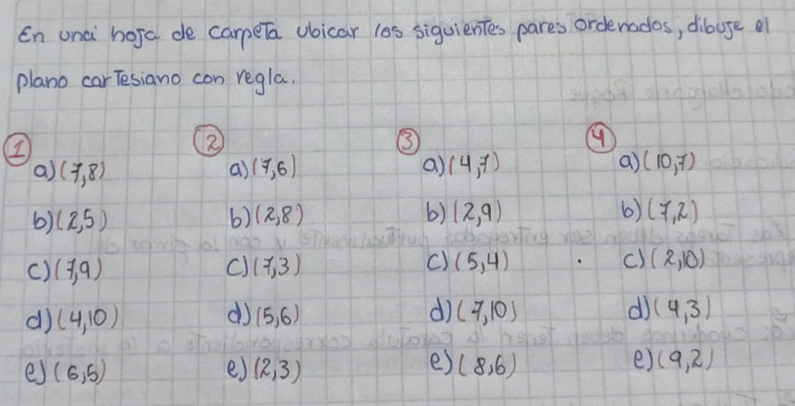 En una hoja de carpeta ubicar los siguientes pares ordenados, dibuje el
plano cartesiano con regla.
1 2 3 4
a) (7,8) a) (7,6) a) (4,7) a) (10,7)
b) (2,5) b) (2,8) b) (2,9) b) (7,2)
c) (7,9) c) (7,3) c) (5,4) c) (2,10)
d) (4,10) d) (5,6) d) (7,10) d) (4,3)
e) (6,5) e) (2,3) e) (8,6) e) (9,2)